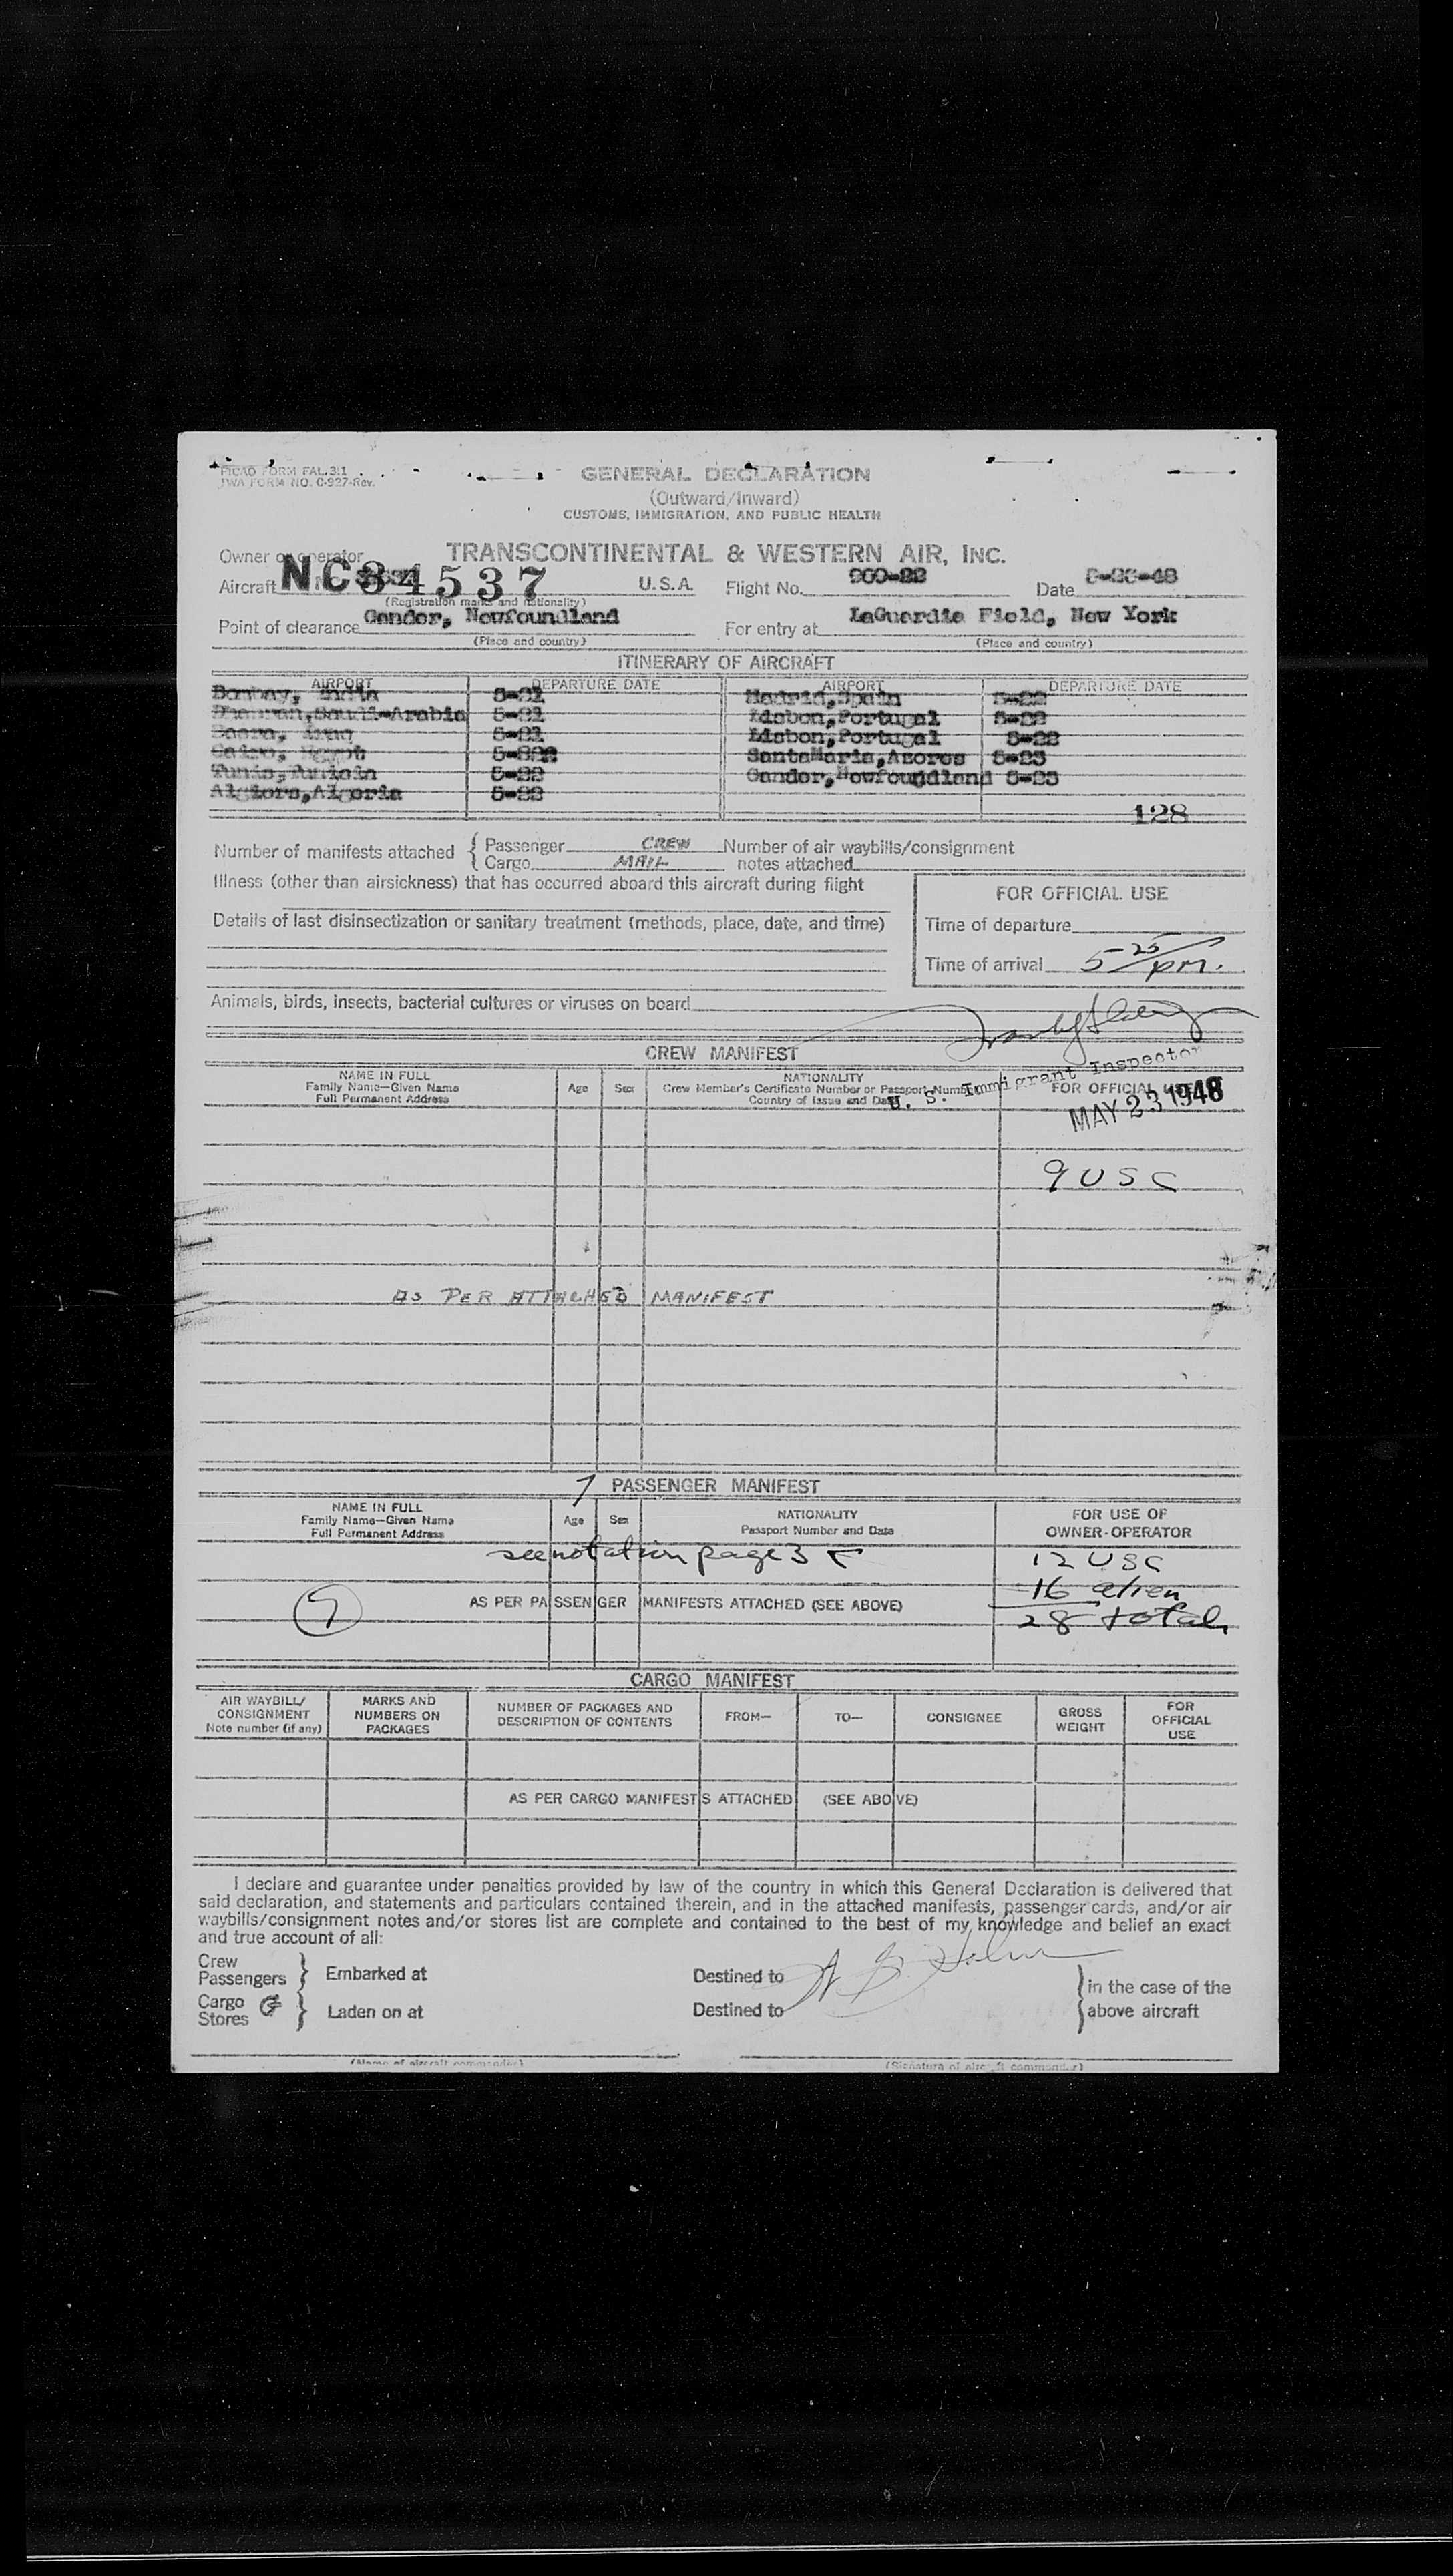 PICAO FORM FAL.3:1
TWA FORM NO. C-927-Rev.
GENERAL DECLARATION
(Outward/Inward)
CUSTOMS, IMMIGRATION, AND PUBLIC HEALTH
Owner or operator TRANSCONTINENTAL & WESTERN AIR, INC.
Aircraft NC84537 U.S.A. Flight No. 969-22 Date
(Registration marks and nationality)
Point of clearance Gander, Newfoundland For entry at LaGuardia Field, New York
(Place and country) (Place and country)
ITINERARY OF AIRCRAFT
AIRPORT DEPARTURE DATE AIRPORT DEPARTURE DATE
Bombay, India 5-21 Madrid,Spain 5-22
Dhahran,Saudi-Arabia 5-21 Lisbon,Portugal 5-22
Basra, Iraq 5-21 Lisbon,Portugal 5-22
Cairo, Egypt SantaMaria,Azores 5-23
Tunis,Tunisia 5-22 Gander,Newfoundland 5-23
Algiers,Algeria 5-22
128
Number of manifests attached { Passenger CREW Number of air waybills/consignment
Cargo MAIL notes attached
Illness (other than airsickness) that has occurred aboard this aircraft during flight
FOR OFFICIAL USE
Details of last disinsectization or sanitary treatment (methods, place, date, and time)
Time of departure
Time of arrival 5 25/pm.
Animals, birds, insects, bacterial cultures or viruses on board
CREW MANIFEST
U. S. Immigrant Inspector
NAME IN FULL
Family Name—Given Name
Full Permanent Address
Age Sex
NATIONALITY
Crew Member's Certificate Number or Passport Number
Country of Issue and Date
FOR OFFICIAL USE
MAY 23 1948
9 USC
AS PER ATTACHED MANIFEST
7 PASSENGER MANIFEST
NAME IN FULL
Family Name—Given Name
Full Permanent Address
Age Sex
NATIONALITY
Passport Number and Date
FOR USE OF
OWNER-OPERATOR
see notation page 3
12 USC
16 alien
28 total
7
AS PER PASSENGER MANIFESTS ATTACHED (SEE ABOVE)
CARGO MANIFEST
AIR WAYBILL/
CONSIGNMENT
Note number (if any)
MARKS AND
NUMBERS ON
PACKAGES
NUMBER OF PACKAGES AND
DESCRIPTION OF CONTENTS
FROM—
TO—
CONSIGNEE
GROSS
WEIGHT
FOR
OFFICIAL
USE
AS PER CARGO MANIFESTS ATTACHED (SEE ABOVE)
I declare and guarantee under penalties provided by law of the country in which this General Declaration is delivered that
said declaration, and statements and particulars contained therein, and in the attached manifests, passenger cards, and/or air
waybills/consignment notes and/or stores list are complete and contained to the best of my knowledge and belief an exact
and true account of all:
Crew
Passengers } Embarked at Destined to } in the case of the
Cargo
Stores } Laden on at Destined to above aircraft
(Name of aircraft commander) (Signature of aircraft commander)